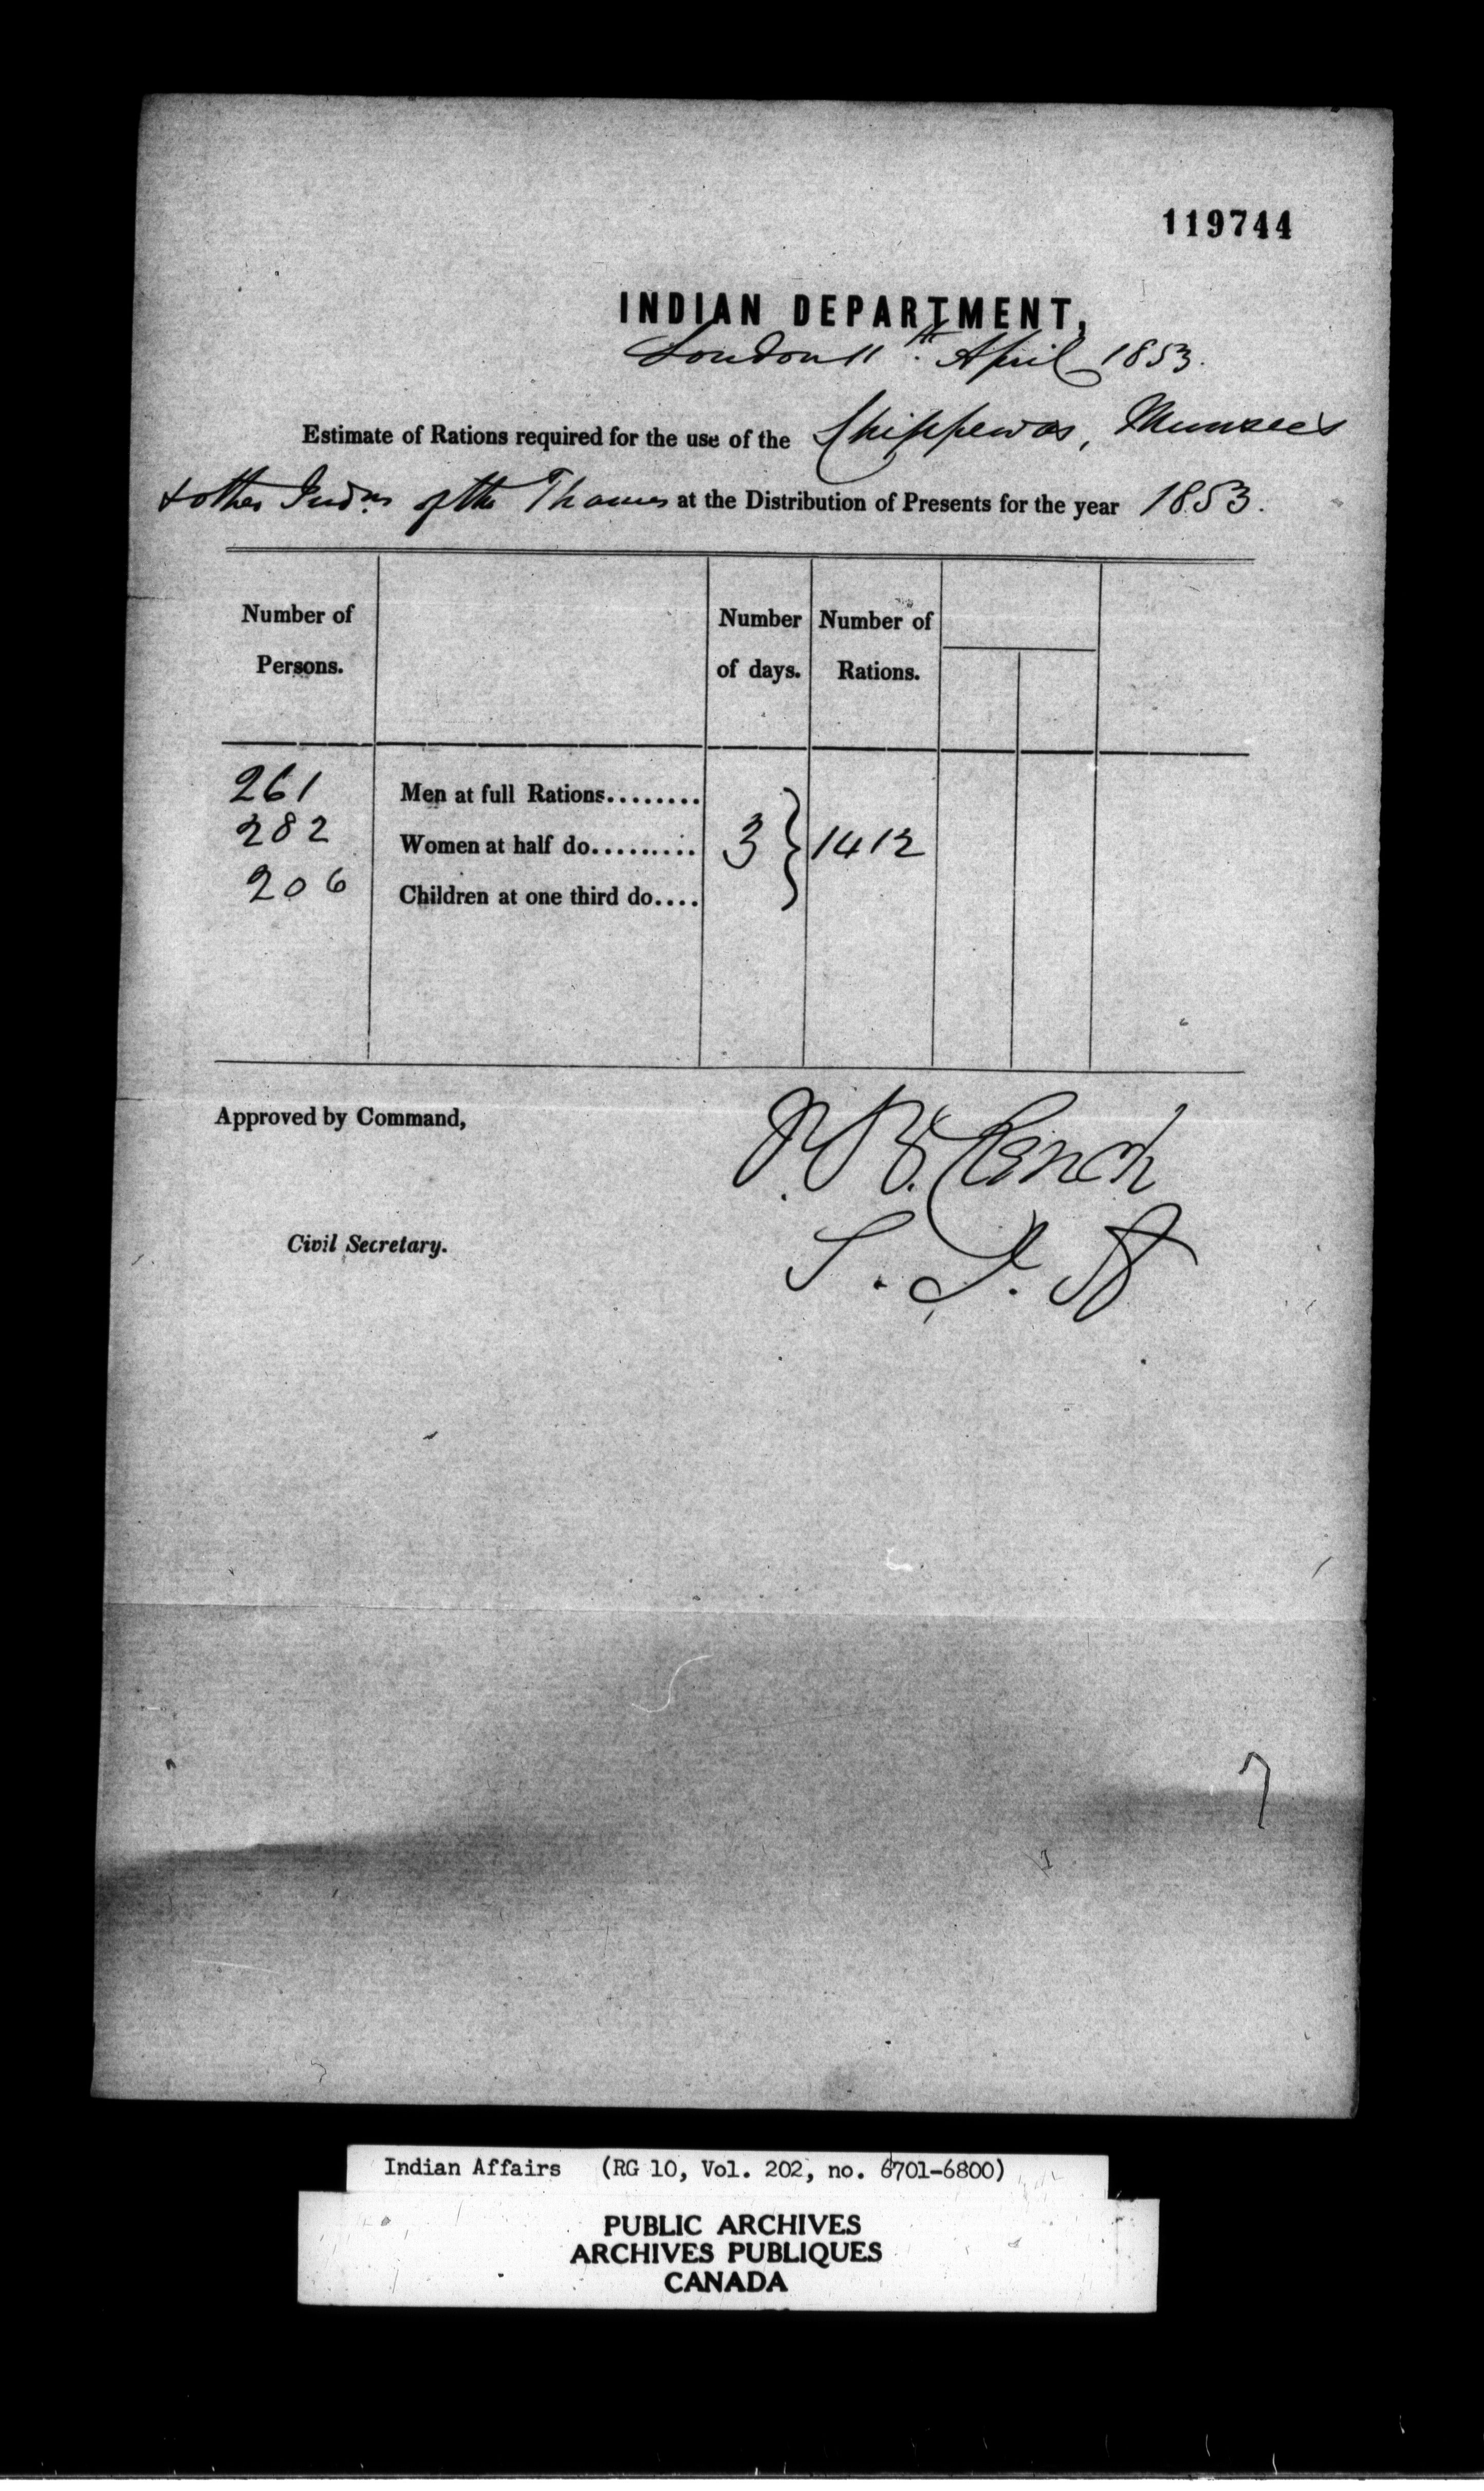 119744
INDIAN DEPARTMENT,
London 11th. April 1853.
Estimate of Rations required for the use of the Chippewas, Munsees
& other Indns of the Thames at the Distribution of Presents for the year 1853.
Number of Persons.
Number of days.
Number of Rations.
261 Men at full Rations........
282 Women at half do......... 3 } 1412
206 Children at one third do....
Approved by Command,
J. B. Clench
S. I. A
Civil Secretary.
7
Indian Affairs (RG 10, Vol. 202, no. 6701-6800)
PUBLIC ARCHIVES
ARCHIVES PUBLIQUES
CANADA